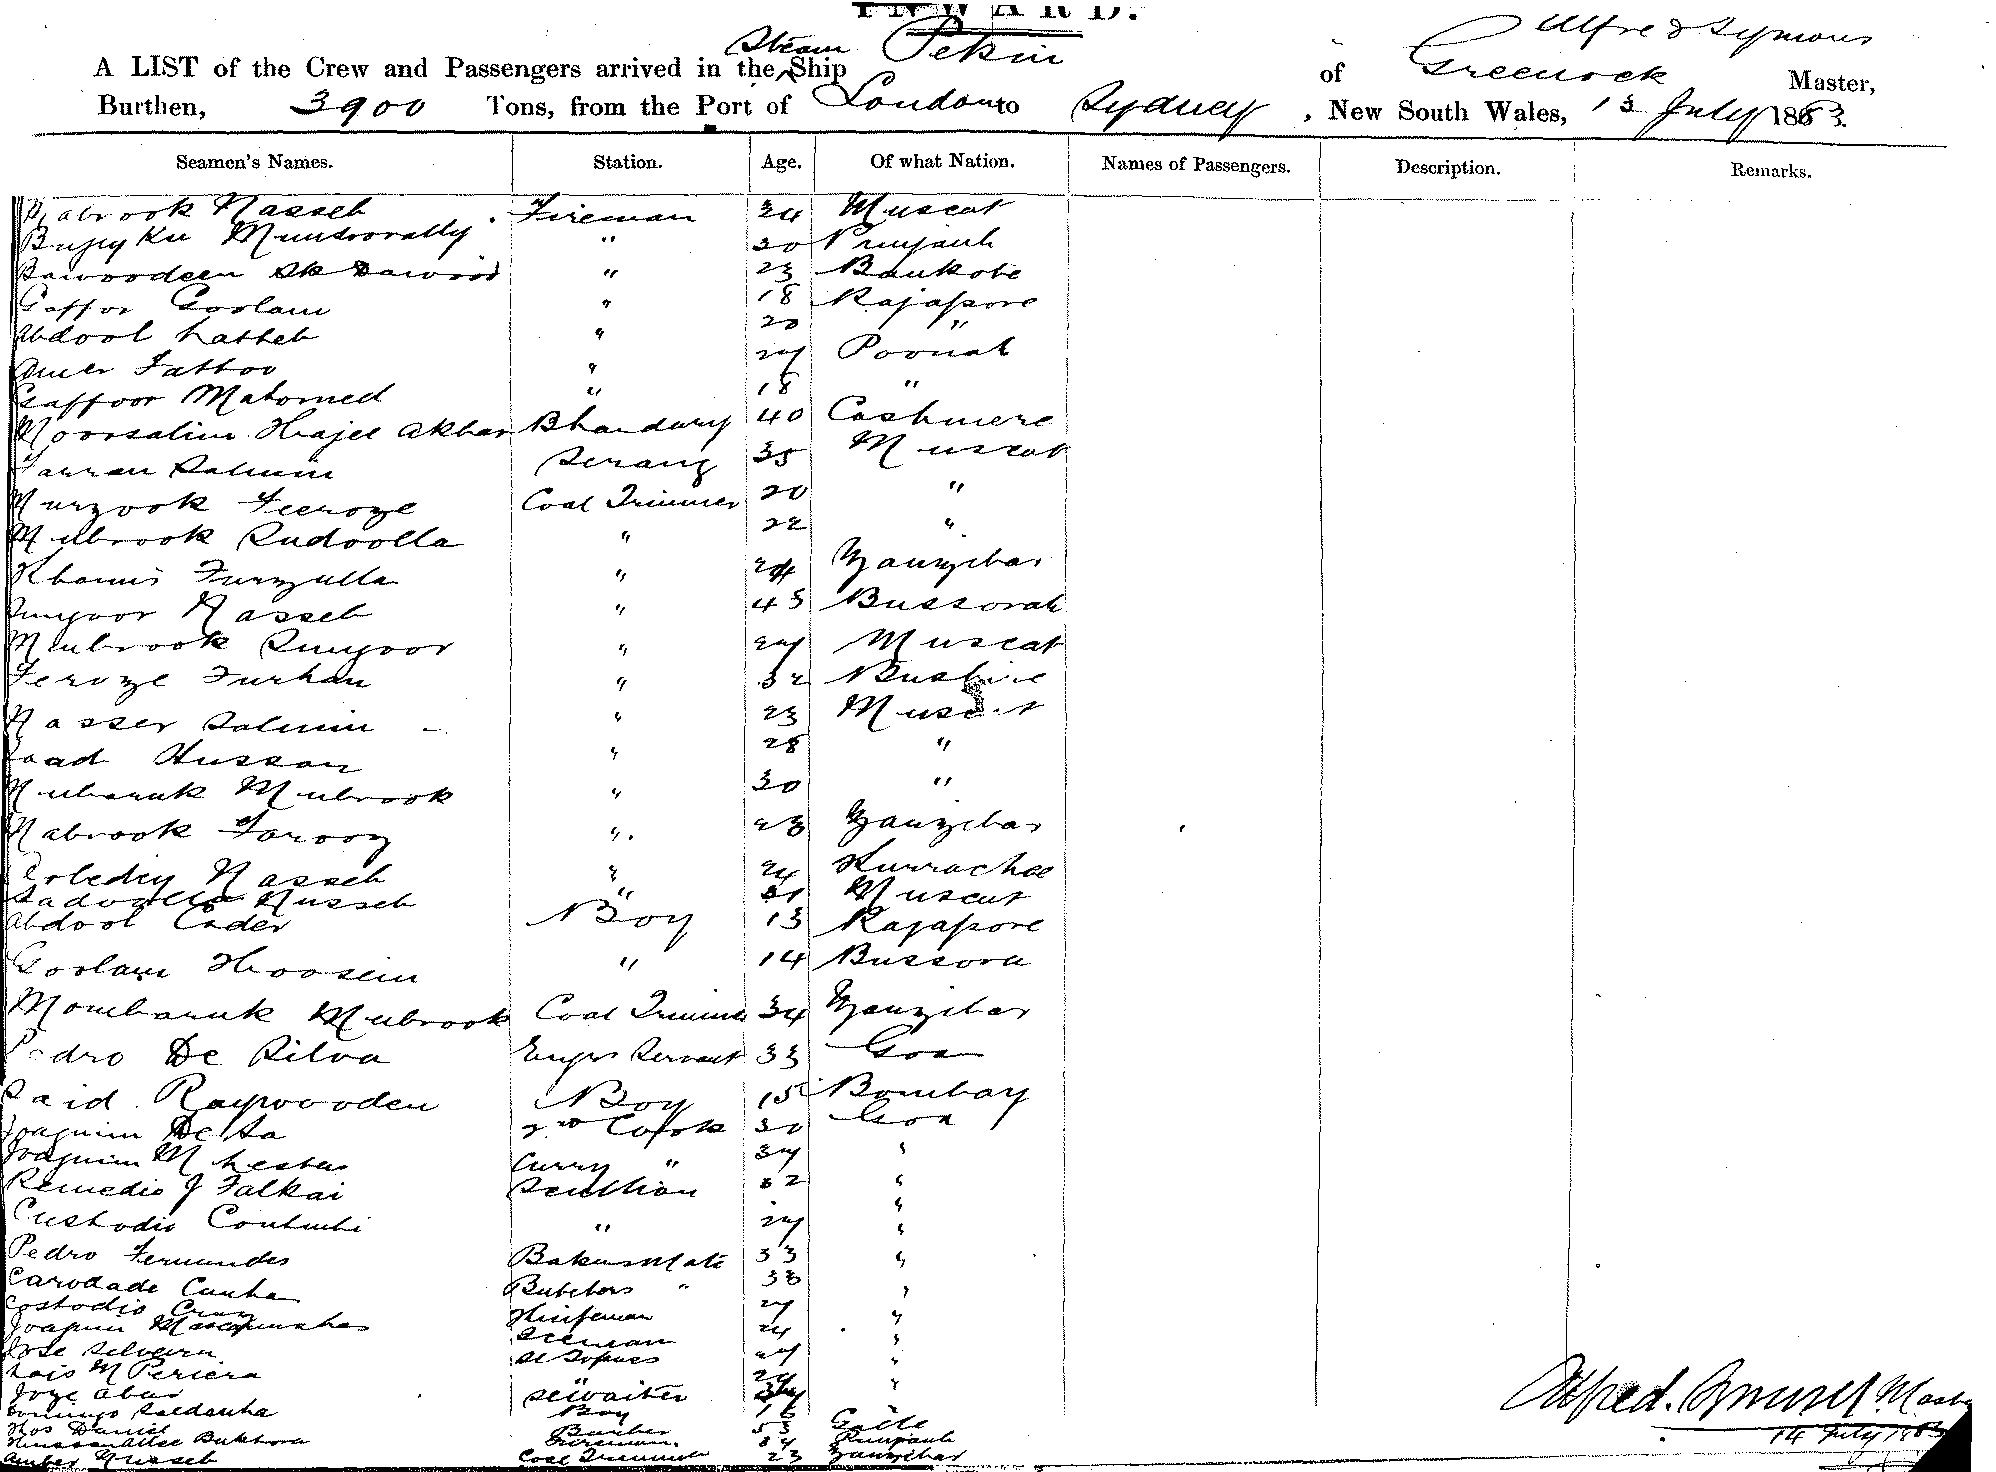 INWARD.
Alfred Symons
A LIST of the Crew and Passengers arrived in the Steam Ship Pekin of Greenock Master,
Burthen, 3900 Tons, from the Port of London to Sydney, New South Wales, 13 July 1883.
Seamen's Names. Station. Age. Of what Nation. Names of Passengers. Description. Remarks.
Mabrook Nasseb Fireman 24 Muscat
Mundoorally " 30 Punjaub
Dawoodeen Sk Dawood " 23 Bankote
Gaffor Goolam " 18 Rajapore
Abdool Latteb " 20 "
Amer Fattoo " 24 Poonah
Gaffoor Mahomed " 18 "
Noorsalim Hajee Akbar Bhandary 40 Cashmere
Salmin Serang 35 Muscat
Murzook Feeroze Coal Trimmer 20 "
Mubrook Sudoolla " 22 "
Khamis Furzulla " 24 Zanzibar
Sungoor Nasseb " 45 Bussorah
Mubrook Sungoor " 24 Muscat
Feroze Furhan " 32 Bushire
Nasser Salmin " 23 Muscat
Saad Hussan " 28 "
Mubaruk Mubrook " 30 "
Mabrook Farooz " 23 Zanzibar
Nasseb " 24 Kurrachee
Sadoolla Nusseb " 31 Muscat
Abdool Cader Boy 13 Rajapore
Goolam Hoosein " 14 Bussora
Mombaruk Mubrook Coal Trimmer 34 Zanzibar
Pedro De Silva Engrs Servant 33 Goa
Said Boy 15 Bombay
Joaquim De Sa 2nd Cook 30 Goa
Joaquim M Curry " 34 "
Remedio J Falkai Scullion 32 "
Custodio " 24 "
Pedro Fernandes Bakers Mate 33 "
Caridade Cunha Butchers " 38 "
Costodio Cruz 24 "
Joaquim 24 "
Jose 24 "
Lais M Periera 24
Joze 34 "
Domingo Saldanha Boy 16
Daniel Barber 53 Galle
Bukhora Fireman 34 Punjaub
Amber Nusseb Coal Trimmer 23 Zanzibar
Alfred Symons Master
14 July 1883